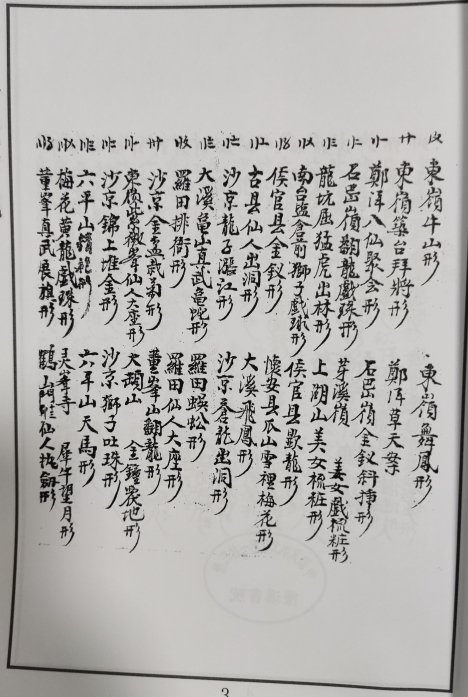 東嶺牛山形 東嶺舞鳳形
東嶺築台拜將形 鄭洋草天
鄭洋八仙聚会形 石岊嶺金釵斜插形
石岊嶺翻龍戲珠形 芽溪嶺 美女戲梳粧形
龍坑屈猛虎出林形 上湖山美女梳粧形
南台塩倉前獅子戲球形 侯官县歇龍形
侯官县金釵形 懷安县瓜山雪裡梅花形
古县仙人出洞形 大溪飛鳳形
沙京龍子漲江形 沙京蒼龍出洞形
大溪亀山真武亀蛇形 羅田蜈蚣形
羅田排衙形 羅田仙人大座形
沙京金盂栽菊形 董峯山翻龍形
東嶺紫微峯仙人大座形 大頑山 金鐘地形
沙京錦上堆金形 沙京獅子吐珠形
六平山龍形 六平山天馬形
梅花黄龍戲珠形 灵峯寺 犀牛望月形
董峯真武展旗形 鶴山門仙人执劍形
3